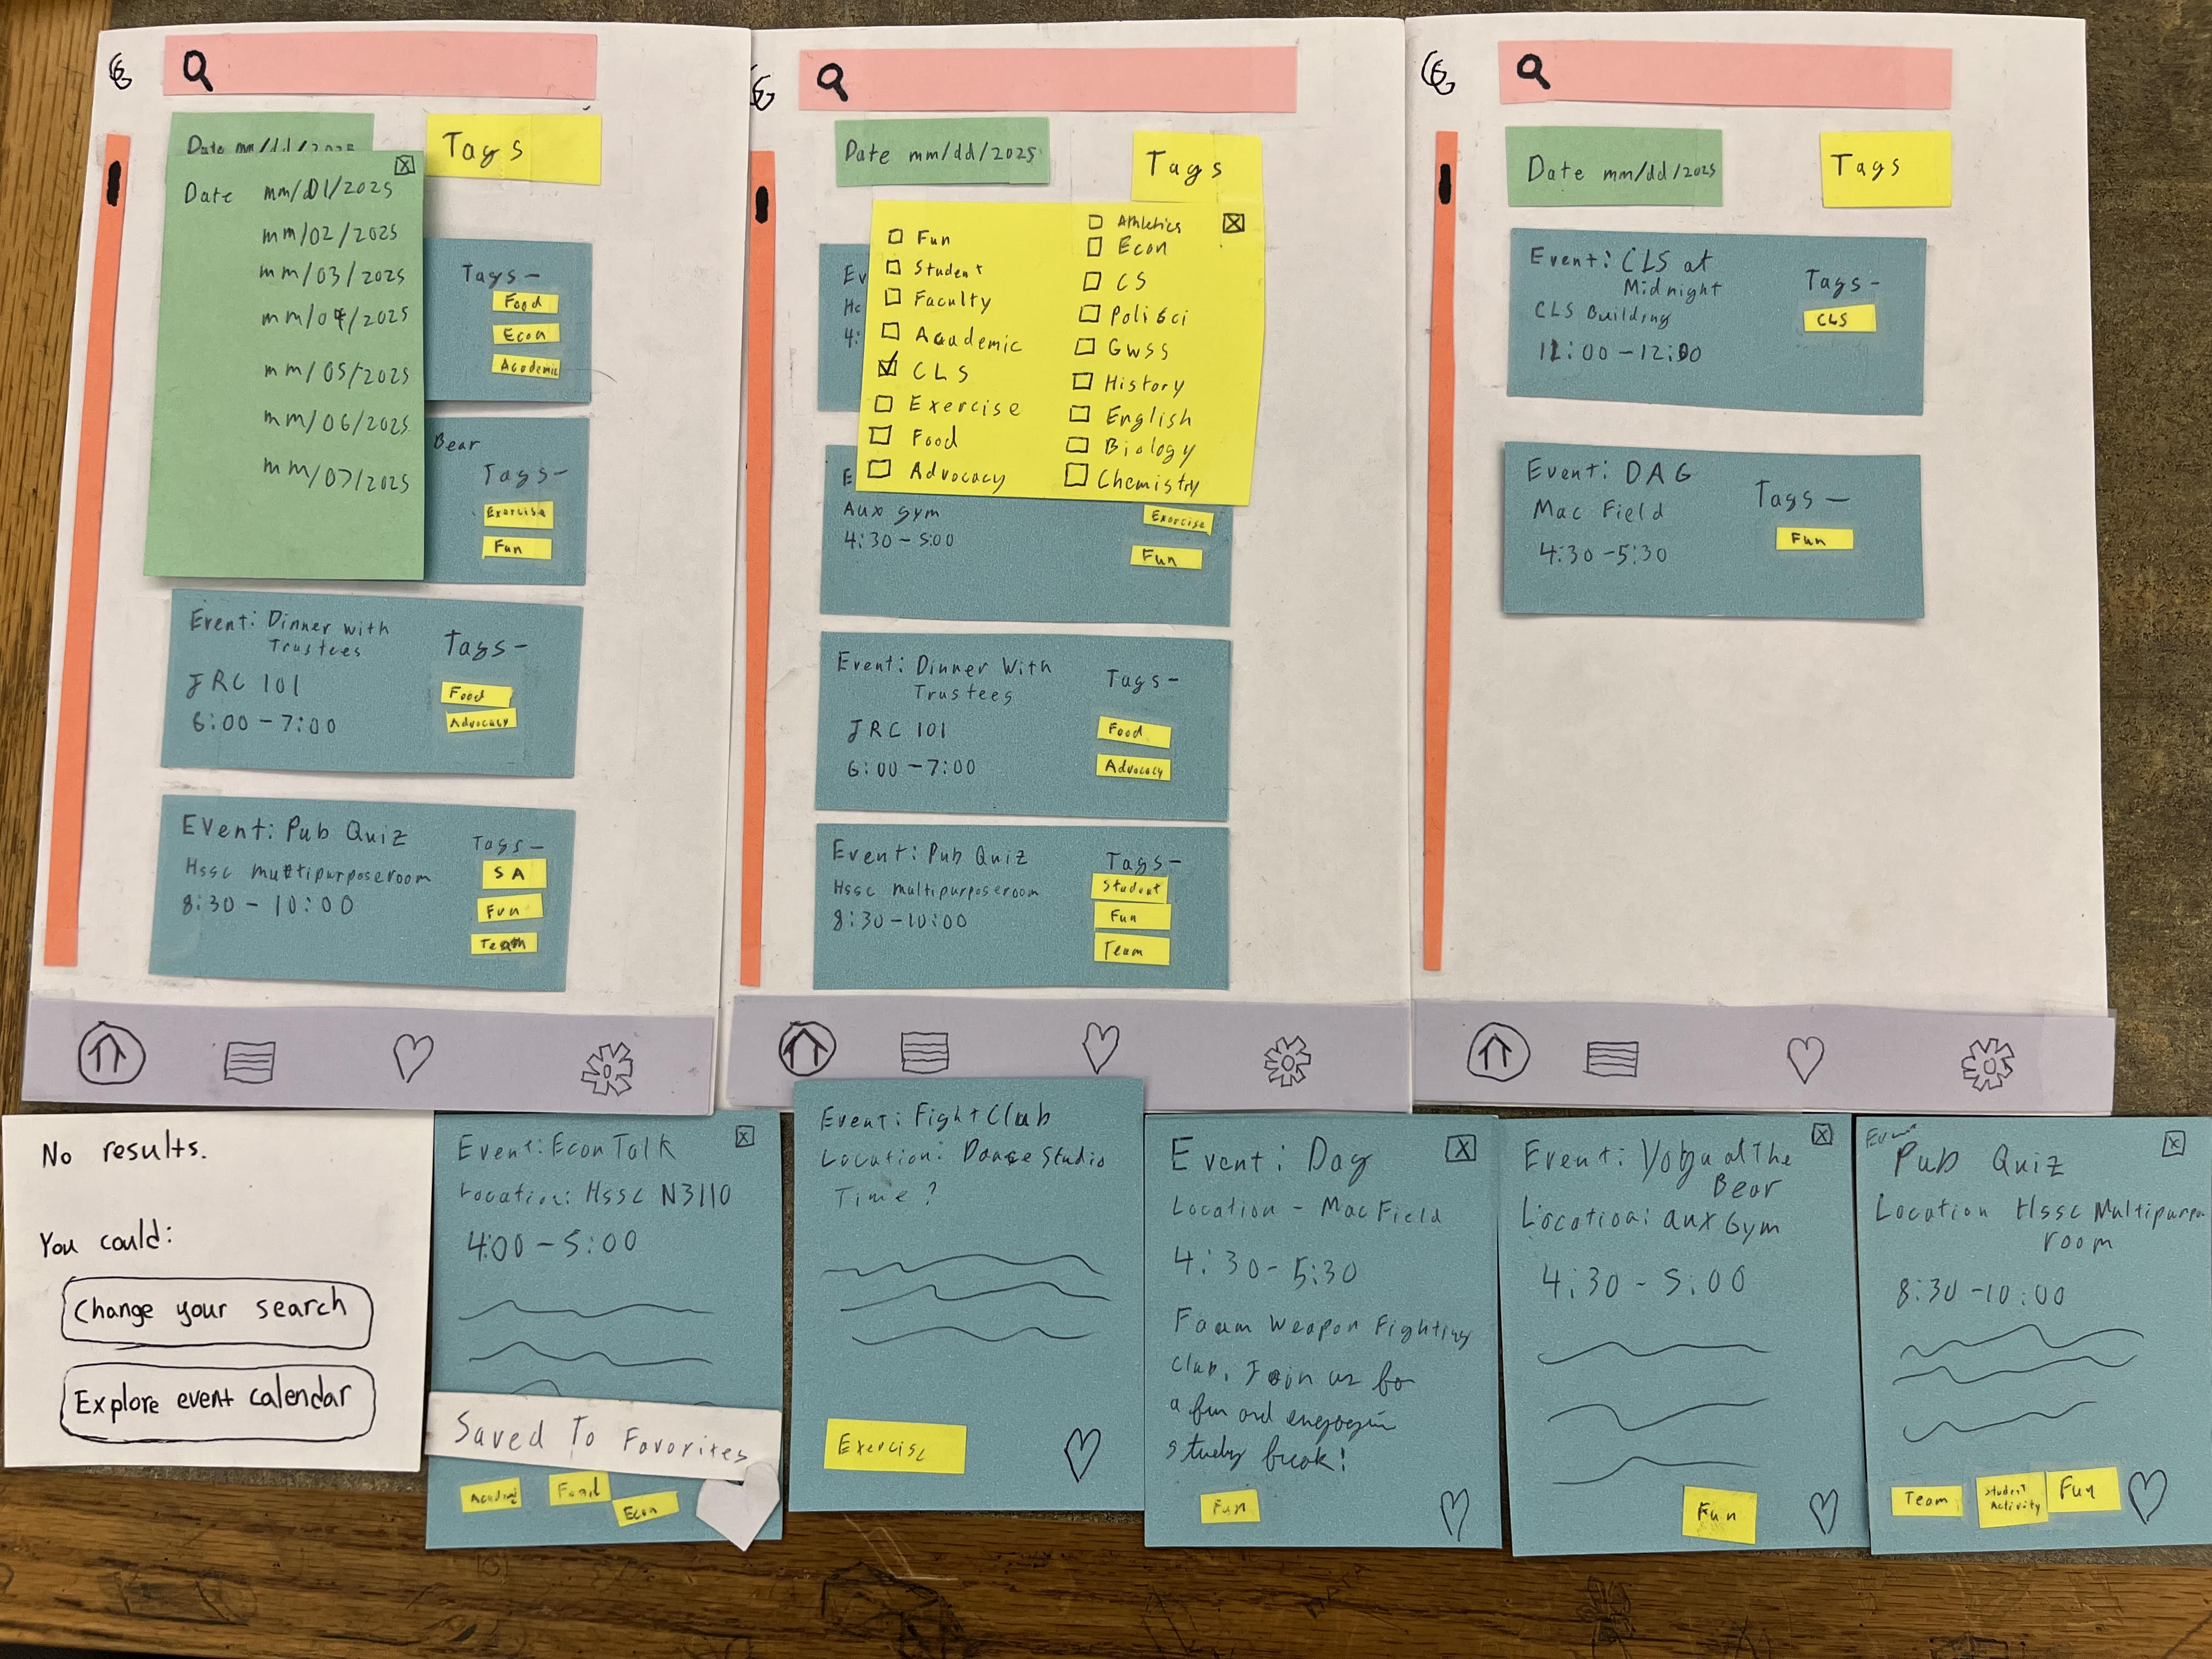 Date mm/dd/2025
Tags
Date mm/01/2025
mm/02/2025
mm/03/2025
mm/04/2025
mm/05/2025
mm/06/2025
mm/07/2025
Tags -
Food
Econ
Academic
Bear
Tags -
Exercise
Fun
Event: Dinner with
Trustees
JRC 101
6:00 - 7:00
Tags -
Food
Advocacy
Event: Pub Quiz
Hssc multipurposeroom
8:30 - 10:00
Tags -
SA
Fun
Team
Date mm/dd/2025
Tags
Fun
Student
Faculty
Academic
CLS
Exercise
Food
Advocacy
Athletics
Econ
CS
Polisci
GWSS
History
English
Biology
Chemistry
Ev
Hc
4:
E
Aux gym
4:30 - 5:00
Exercise
Fun
Event: Dinner With
Trustees
JRC 101
6:00 - 7:00
Tags -
Food
Advocacy
Event: Pub Quiz
Hssc multipurposeroom
8:30 - 10:00
Tags -
Student
Fun
Team
Date mm/dd/2025
Tags
Event: CLS at
Midnight
CLS Building
11:00 - 12:00
Tags -
CLS
Event: DAG
Mac Field
4:30 - 5:30
Tags -
Fun
No results.
You could:
Change your search
Explore event calendar
Event: Econ Talk
Location: Hssc N3110
4:00 - 5:00
Saved To Favorites
Academic
Food
Econ
Event: Fight Club
Location: Dance Studio
Time?
Exercise
Event: Dag
Location - Mac Field
4:30 - 5:30
Foam Weapon Fighting
club. Join us for
a fun and engagin
study break!
Fun
Event: at The
Bear
Location: aux Gym
4:30 - 5:00
Fun
Event
Pub Quiz
Location Hssc Multipurpo
room
8:30 - 10:00
Team
Student
Activity
Fun